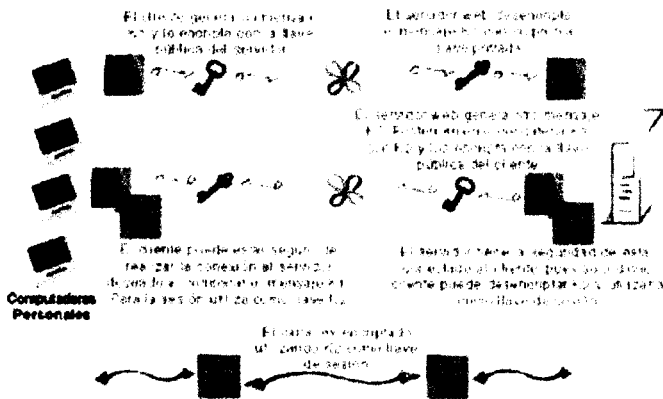 El cliente genera un mensaje
K1 y lo encripta con la llave
pública del servidor
El servidor web desencripta
el mensaje K1 con su propia
llave privada
El servidor web genera otro mensaje
K2
y los encripta con la llave
pública del cliente
El cliente puede estar seguro de
realizar la conexión al servidor
deseado al mensaje K1
Para la sesión utiliza como llave K2
El servidor tiene la seguridad de
al cliente, pues sólo
cliente puede desencriptar K2 y utilizarla
como llave de sesión
Computadoras
Personales
El canal es encriptado
utilizando K2 como llave
de sesión